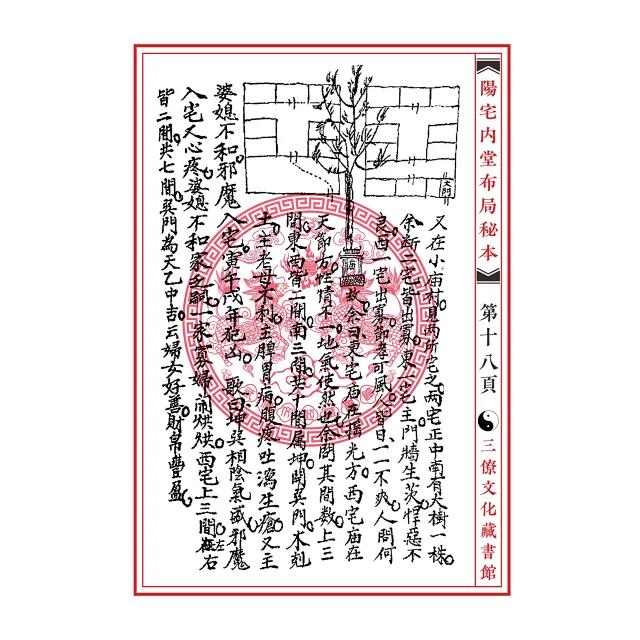 又在小庙村見两所宅之两宅正中南有大樹一株
余断二宅皆出寡東一宅主門牆生茨悍惡不
良西一宅出寡節孝可風人皆曰一一不爽人問何
故余曰東宅庙在搖光方西宅庙在
天節方性情不一地氣使然也余問其間数上三
間東西皆二間南三間共十間属坤開巽門木剋
土主老母不利主脾胃病腹疼吐瀉生瘡又主
入宅寅午戌年犯凶歌曰坤巽相陰氣盛邪魔
婆媳不和邪魔
入宅人心疼婆媳不和家乏嗣一家寡婦鬧烘烘西宅上三間左右
皆二間共七間巽門為天乙中吉云婦女好善財帛豐盈
大門
庙
陽宅内堂布局秘本
第十八頁
三僚文化藏書館